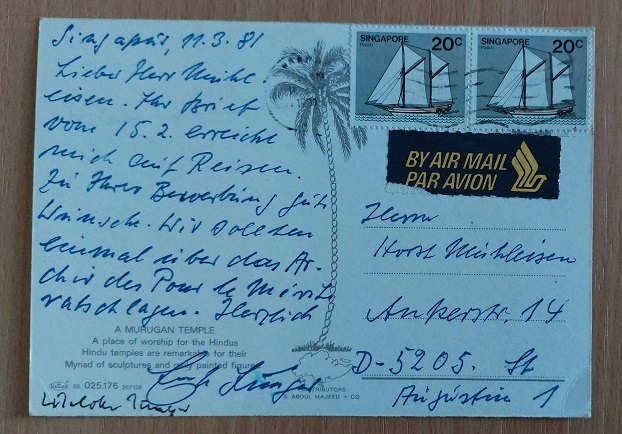 Singapur, 11.3.81
Lieber Herr Mühl-
eisen. Ihr Brief
vom 15.2. erreicht
mich auf Reisen.
Zu Ihrer Bewerbung gute
Wünsche. Wir sollten
einmal über das Ar-
chiv des Pour le Mérite
ratschlagen. Herzlich
Ernst Jünger
A MURUGAN TEMPLE
A place of worship for the Hindus
Hindu temples are remarkable for their
Myriad of sculptures and painted figures
S8. 025.176 367139
DISTRIBUTORS:
S. ABDUL MAJEED + CO
SINGAPORE 20c
Pukat
SINGAPORE 20c
Pukat
BY AIR MAIL
PAR AVION
Herrn
Horst Mühleisen
Ankerstr. 14
D-5205. St
Augustin 1